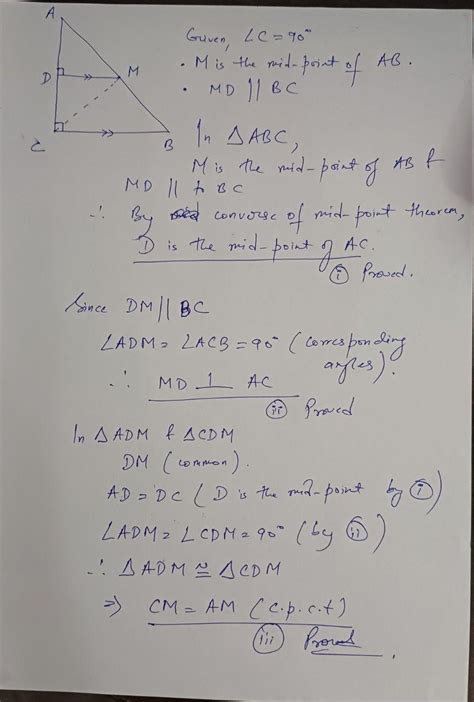 A
Given, ∠C = 90°
• M is the mid-point of AB.
D
M
• MD || BC
C
B
In △ABC,
M is the mid-point of AB &
MD || to BC
∴ By converse of mid-point theorem,
D is the mid-point of AC.
(i) Proved.
Since DM || BC
∠ADM = ∠ACB = 90° (corresponding
angles).
∴ MD ⊥ AC
(ii) Proved
In △ADM & △CDM
DM (common).
AD = DC (D is the mid-point by (i))
∠ADM = ∠CDM = 90° (by (ii))
∴ △ADM ≅ △CDM
⇒ CM = AM (c.p.c.t)
(iii) Proved.